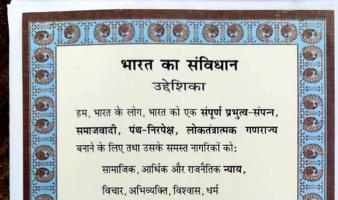 भारत का संविधान
उद्देशिका
हम, भारत के लोग, भारत को एक संपूर्ण प्रभुत्व-संपन्न,
समाजवादी, पंथ-निरपेक्ष, लोकतंत्रात्मक गणराज्य
बनाने के लिए तथा उसके समस्त नागरिकों को:
सामाजिक, आर्थिक और राजनैतिक न्याय,
विचार, अभिव्यक्ति, विश्वास, धर्म